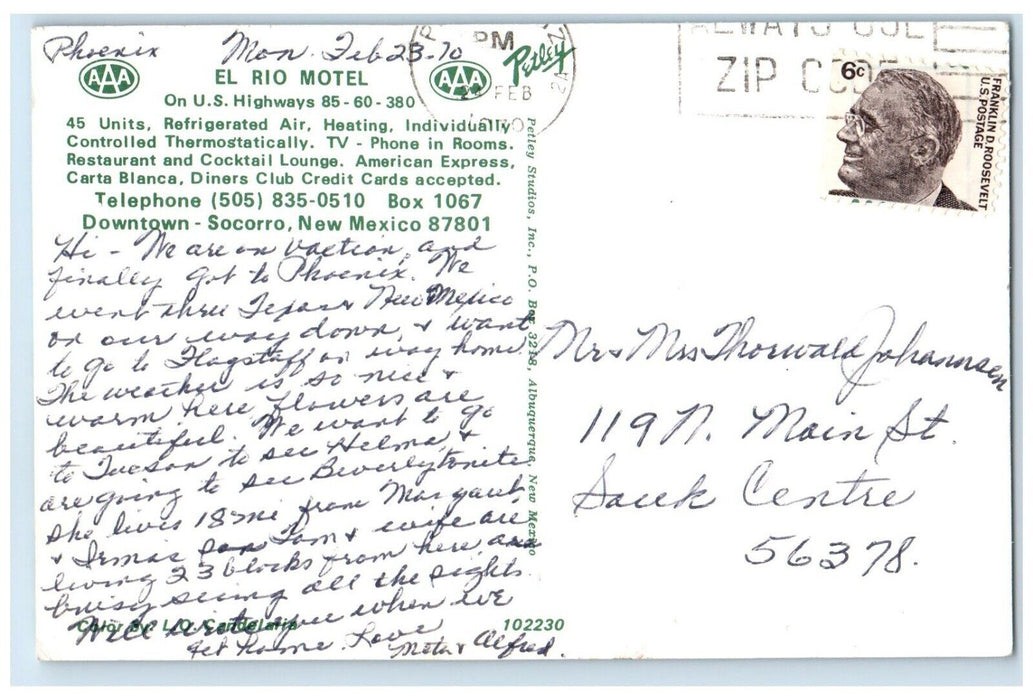 Phoenix Mon. Feb 23-70
AAA
AAA
PM
FEB
Petley
ALWAYS USE
ZIP CODE
6c
FRANKLIN D. ROOSEVELT
U.S. POSTAGE
EL RIO MOTEL
On U.S. Highways 85 - 60 - 380
45 Units, Refrigerated Air, Heating, Individually
Controlled Thermostatically. TV - Phone in Rooms.
Restaurant and Cocktail Lounge. American Express,
Carta Blanca, Diners Club Credit Cards accepted.
Telephone (505) 835-0510 Box 1067
Downtown - Socorro, New Mexico 87801
Hi - We are on vaction, and
finally got to Phoenix. We
went thru Texas & New Mexico
on our way down, & want
to go to Flagstaff on way home.
The weather is so nice &
warm here, flowers are
beautiful. We want to go
to Tucson to see Helma, &
are going to see Beverly tonite
she lives 18 mi from Margaret,
& Irmas son Tom & wife are
living 23 blocks from here,
busy seeing all the sights.
Will write you when we
get home. Love
Meta & Alfred.
Color by: L.O. Candelaria
102230
Petley Studios, Inc., P.O. Box 3218, Albuquerque, New Mexico
Mr & Mrs Thorwald Johannsen
119 N. Main St.
Sauk Centre
56378.